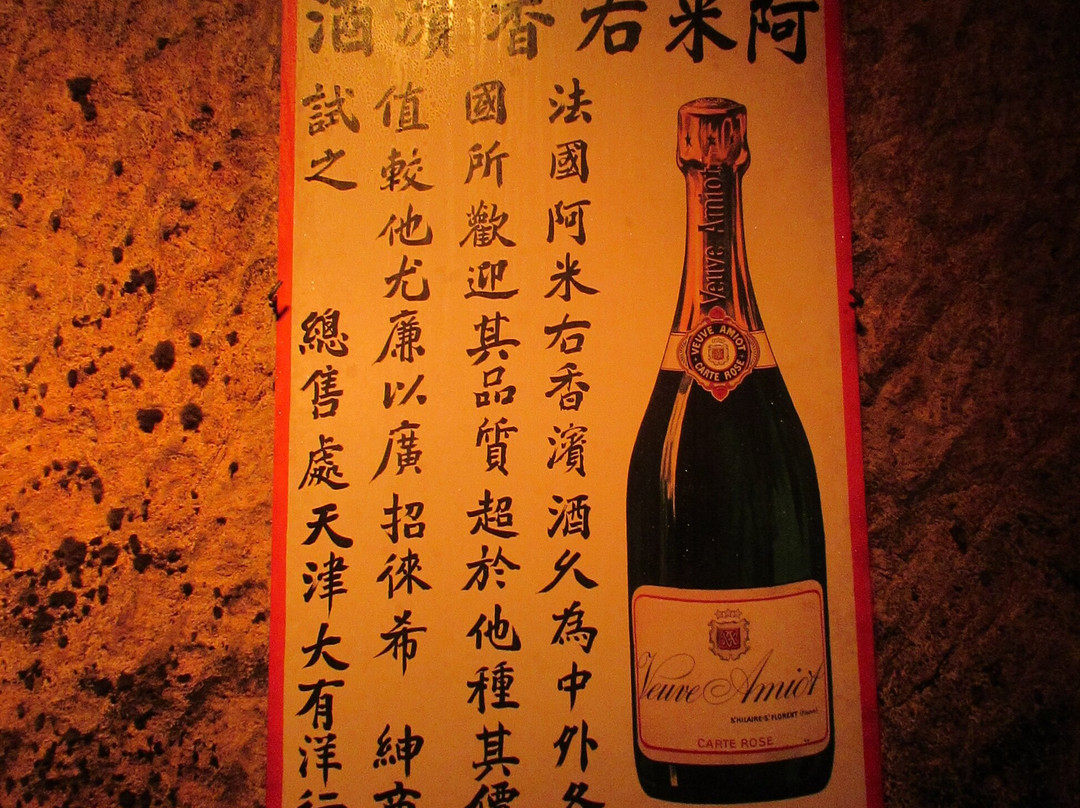 阿米右香濱酒
法國阿米右香濱酒久為中外各
國所歡迎其品質超於他種其價
值較他尤廉以廣招徠希 紳商
試之 總售處天津大有洋行
Veuve Amiot
VEUVE AMIOT
CARTE ROSE
Veuve Amiot
St HILAIRE-St FLORENT (France)
CARTE ROSE